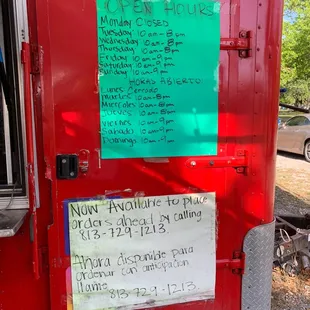 OPEN HOURS
Monday Closed
Tuesday 10am-8pm
Wednesday 10am-8pm
Thursday 10am-8pm
Friday 10am-9pm
Saturday 10am-9pm
Sunday 10am-9pm
HORAS ABIERTO
Lunes Cerrado
Martes 10am-8pm
Miercoles 10am-8pm
Jueves 10am-8pm
Viernes 10am-9pm
Sabado 10am-9pm
Domingo 10am-9pm
Now Available to Place
orders ahead by calling
813-729-1213.
Ahora disponible para
ordenar con anticipación
llame 813-729-1213.